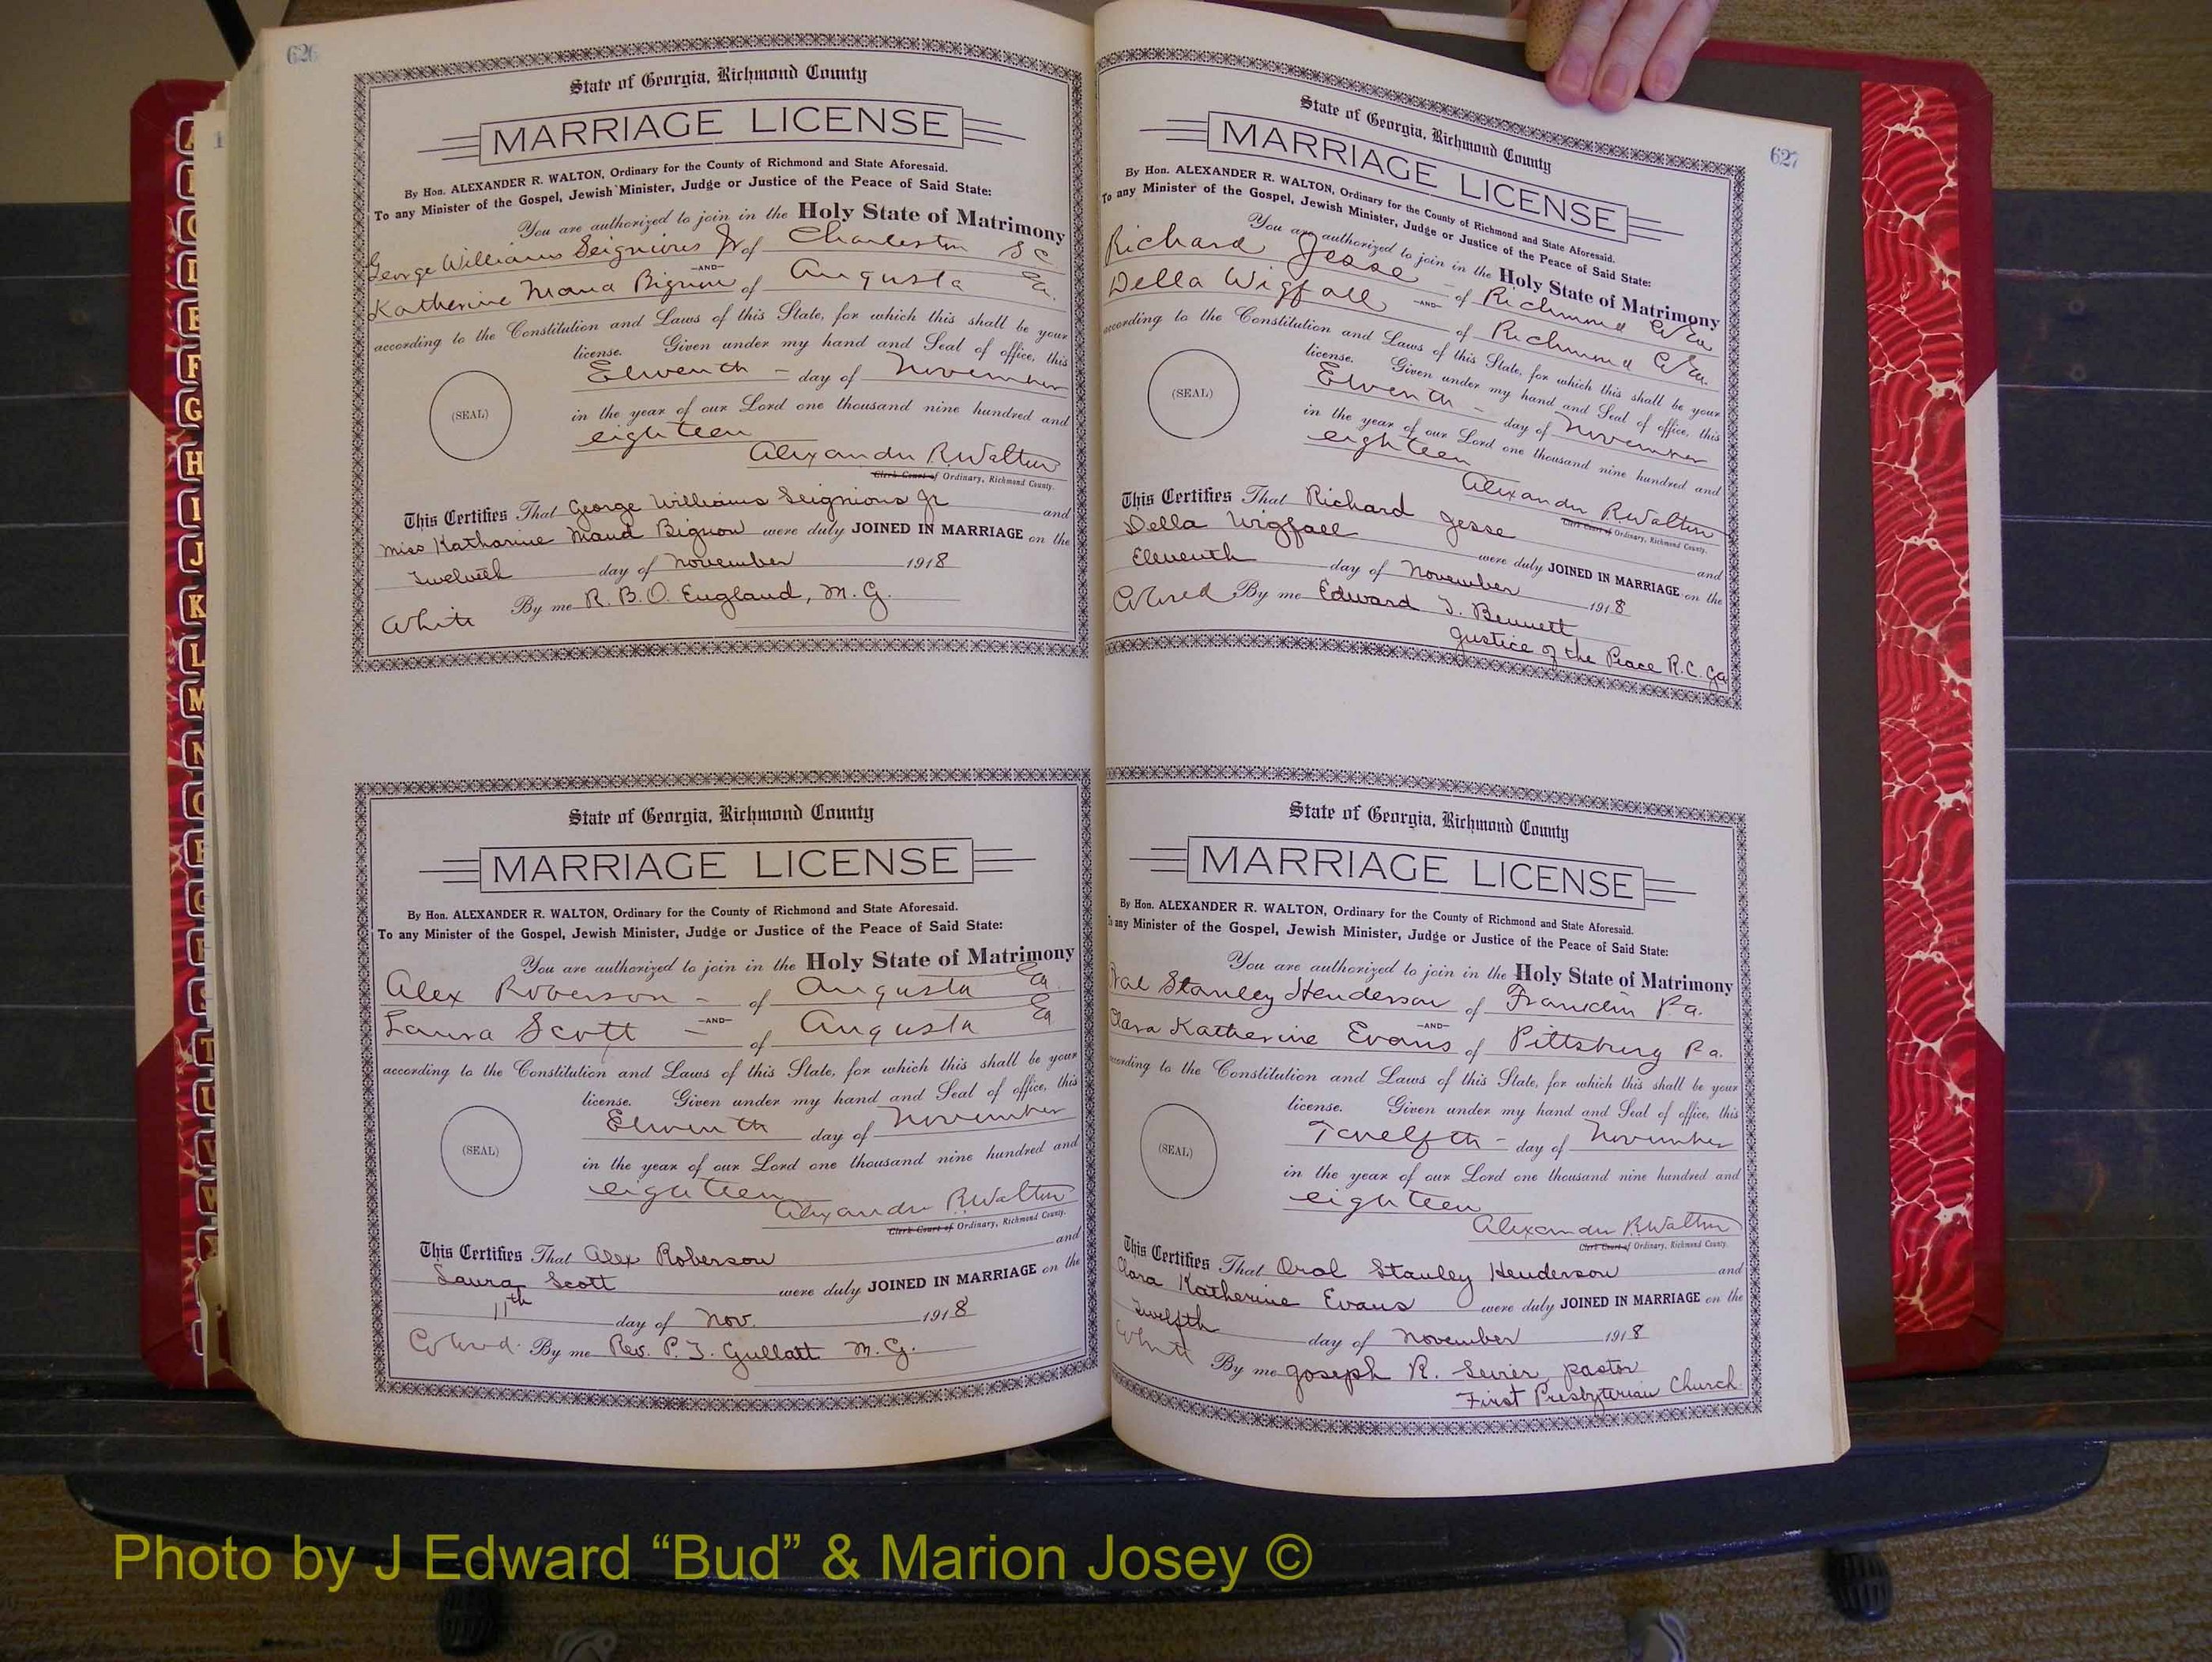 626
State of Georgia, Richmond County
MARRIAGE LICENSE
By Hon. ALEXANDER R. WALTON, Ordinary for the County of Richmond and State Aforesaid.
To any Minister of the Gospel, Jewish Minister, Judge or Justice of the Peace of Said State:
You are authorized to join in the Holy State of Matrimony
George Williams Seignious Jr of Charleston S C
—AND—
Katherine Maud Bignon of Augusta Ga.
according to the Constitution and Laws of this State, for which this shall be your
license. Given under my hand and Seal of office, this
Eleventh - day of November
(SEAL)
in the year of our Lord one thousand nine hundred and
eighteen
Alexander R. Walton
Clerk Court of Ordinary, Richmond County.
This Certifies That George Williams Seignious Jr and
Miss Katharine Maud Bignon were duly JOINED IN MARRIAGE on the
Twelveth day of November 1918
White By me R. B. O. England, M. G.
State of Georgia, Richmond County
MARRIAGE LICENSE
By Hon. ALEXANDER R. WALTON, Ordinary for the County of Richmond and State Aforesaid.
To any Minister of the Gospel, Jewish Minister, Judge or Justice of the Peace of Said State:
You are authorized to join in the Holy State of Matrimony
Alex Roberson - of Augusta Ga
—AND—
Laura Scott - of Augusta Ga
according to the Constitution and Laws of this State, for which this shall be your
license. Given under my hand and Seal of office, this
Eleventh day of November
(SEAL)
in the year of our Lord one thousand nine hundred and
eighteen
Alexander R. Walton
Clerk Court of Ordinary, Richmond County.
This Certifies That Alex Roberson and
Laura Scott were duly JOINED IN MARRIAGE on the
11th day of Nov. 1918
Colored. By me Rev. P. J. Gullatt M. G.
627
State of Georgia, Richmond County
MARRIAGE LICENSE
By Hon. ALEXANDER R. WALTON, Ordinary for the County of Richmond and State Aforesaid.
To any Minister of the Gospel, Jewish Minister, Judge or Justice of the Peace of Said State:
You are authorized to join in the Holy State of Matrimony
Richard Jesse - of Richmond Co Ga
—AND—
Della Wigfall of Richmond Co Ga.
according to the Constitution and Laws of this State, for which this shall be your
license. Given under my hand and Seal of office, this
Eleventh - day of November
(SEAL)
in the year of our Lord one thousand nine hundred and
eighteen
Alexander R. Walton
Clerk Court of Ordinary, Richmond County.
This Certifies That Richard Jesse and
Della Wigfall were duly JOINED IN MARRIAGE on the
Eleventh day of November 1918
Colored By me Edward J. Bennett
Justice of the Peace R. C. Ga
State of Georgia, Richmond County
MARRIAGE LICENSE
By Hon. ALEXANDER R. WALTON, Ordinary for the County of Richmond and State Aforesaid.
To any Minister of the Gospel, Jewish Minister, Judge or Justice of the Peace of Said State:
You are authorized to join in the Holy State of Matrimony
Oral Stanley Henderson of Franklin Pa.
—AND—
Clara Katherine Evans of Pittsburg Pa.
according to the Constitution and Laws of this State, for which this shall be your
license. Given under my hand and Seal of office, this
Twelfth - day of November
(SEAL)
in the year of our Lord one thousand nine hundred and
eighteen
Alexander R. Walton
Clerk Court of Ordinary, Richmond County.
This Certifies That Oral Stanley Henderson and
Clara Katherine Evans were duly JOINED IN MARRIAGE on the
Twelfth day of November 1918
White By me Joseph R. Sevier, pastor
First Presbyterian Church
Photo by J Edward “Bud” & Marion Josey ©